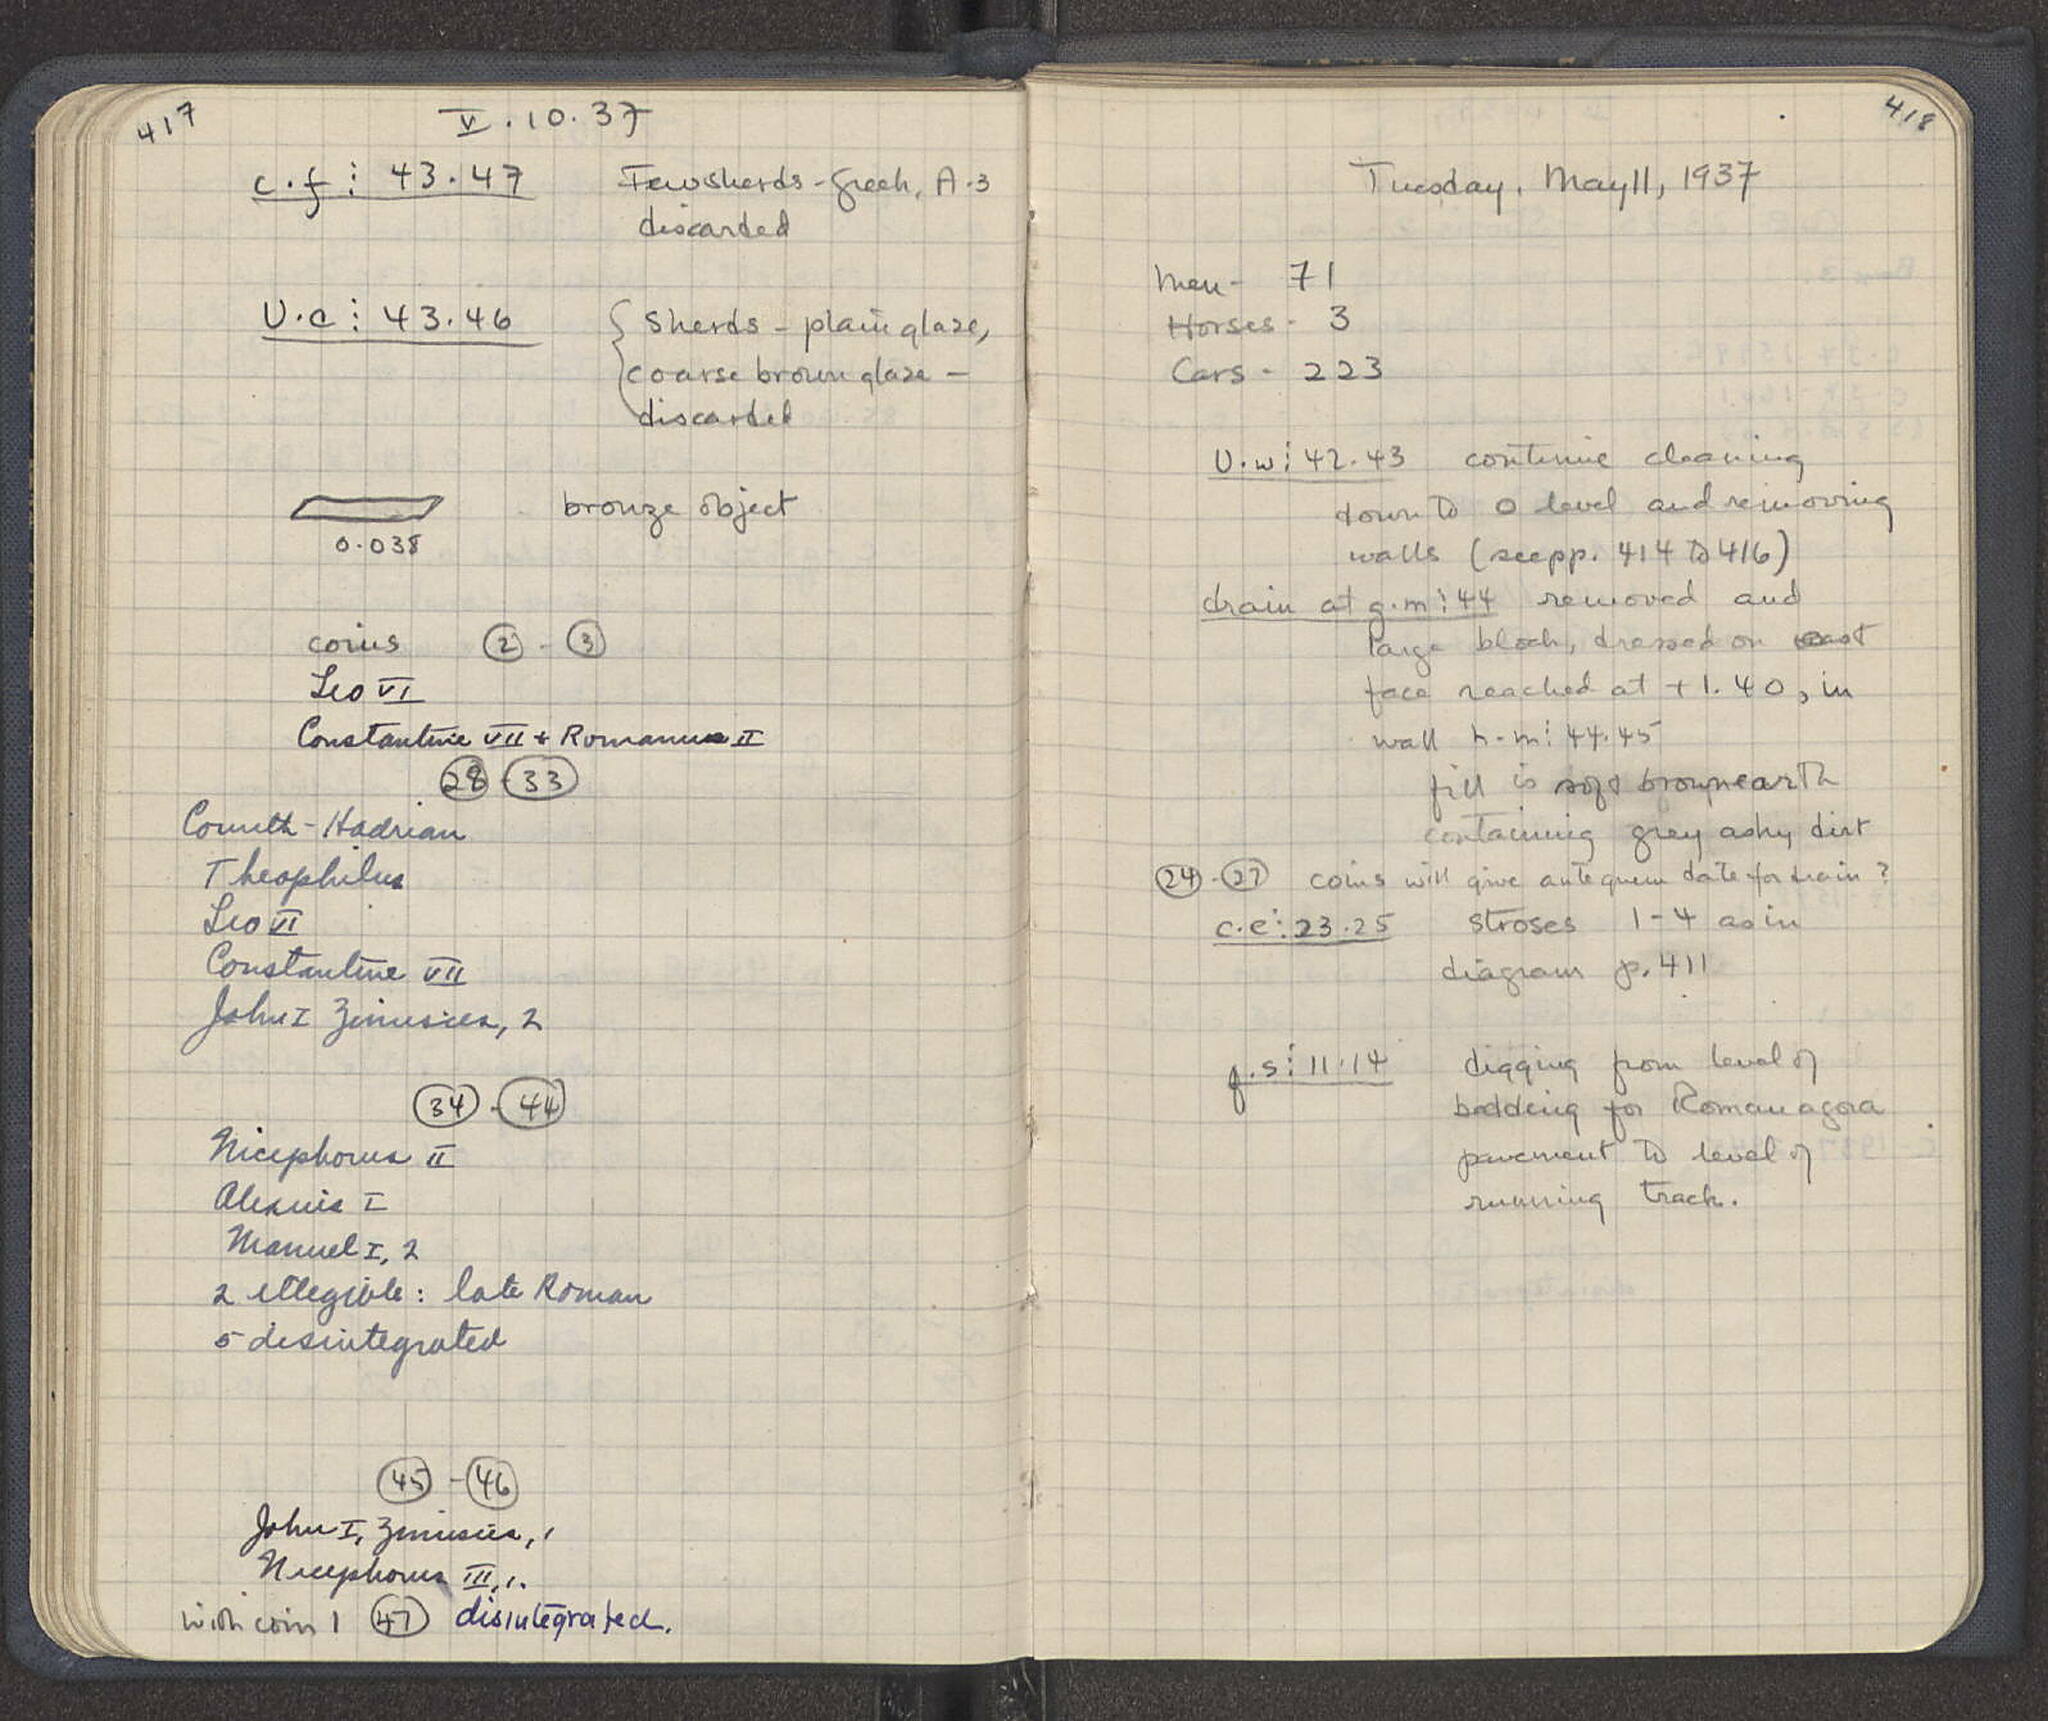 417
V.10.37
c.f⋮ 43.47 Few sherds - Greek, A.3
discarded
U.a⋮ 43.46 Sherds - plain glaze,
coarse brown glaze -
discarded
bronze object
0.038
coins 2 - 3
Leo VI
Constantine VII + Romanus II
28 - 33
Corinth - Hadrian
Theophilus
Leo VI
Constantine VII
John I Zimisces, 2
34 - 44
Nicephorus II
Alexius I
Manuel I, 2
2 illegible: late Roman
5 disintegrated
45 - 46
John I, Zimisces, 1
Nicephorus III, 1.
with coin 1 47 disintegrated.
418
Tuesday, May 11, 1937
Men - 71
Horses - 3
Cars - 223
U.w⋮42.43 continue cleaning
down to 0 level and removing
walls (see pp. 414 to 416)
drain at g.m⋮44 removed and
large block, dressed on east
face reached at +1.40, in
wall h-m⋮44.45
fill is soft brown earth
containing grey ashy dirt
24 - 27 coins will give ante quem date for drain?
c.e⋮23.25 stroses 1-4 as in
diagram p. 411
f.s⋮11.14 digging from level of
bedding for Roman agora
pavement to level of
running track.